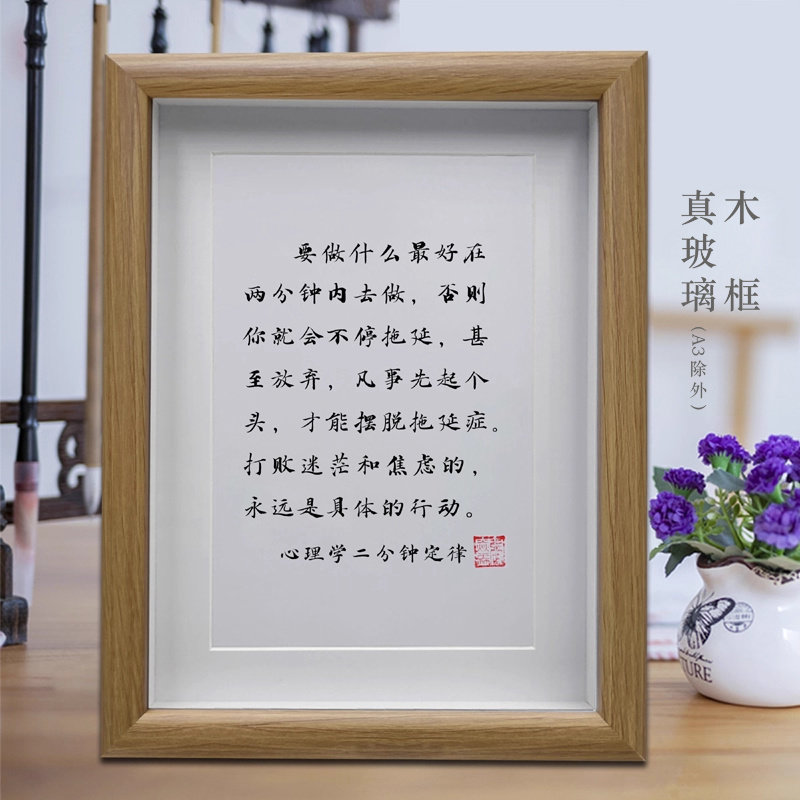 要做什么最好在
两分钟内去做，否则
你就会不停拖延，甚
至放弃，凡事先起个
头，才能摆脱拖延症。
打败迷茫和焦虑的，
永远是具体的行动。
心理学二分钟定律
木框
真玻璃
(A3除外)
TURE